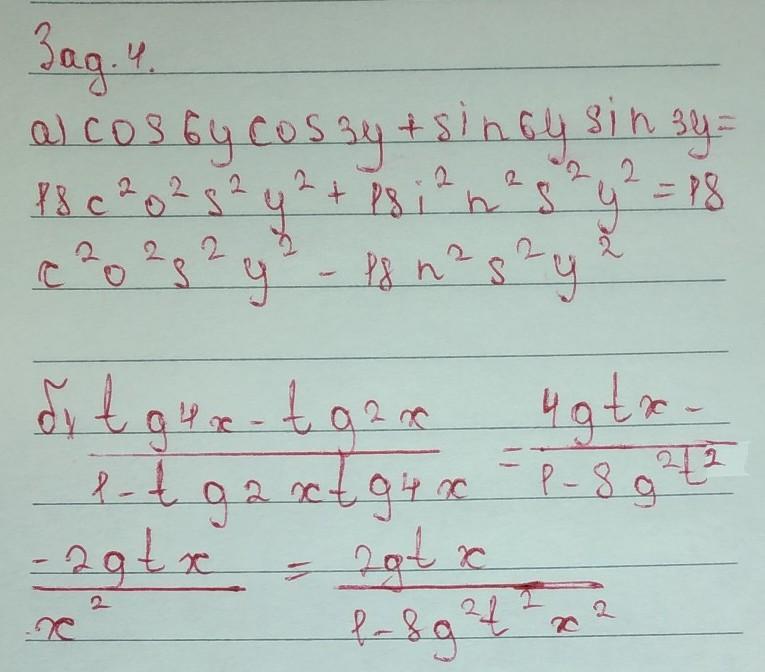 Зад. 4.
а) cos 6y cos 3y + sin 6y sin 3y =
18c²o²s²y² + 18i²n²s²y² = 18
c²o²s²y² - 18n²s²y²
б) tg4x - tg2x / 1 - tg2xtg4x = 4gtx - / 1 - 8g²t²
-2gtx / x² = 2gtx / 1 - 8g²t²x²